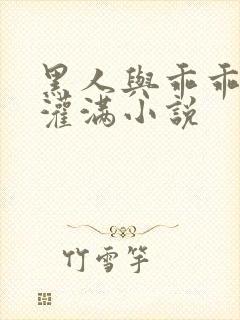 黑人與乖乖
灌满小說
竹雪竽